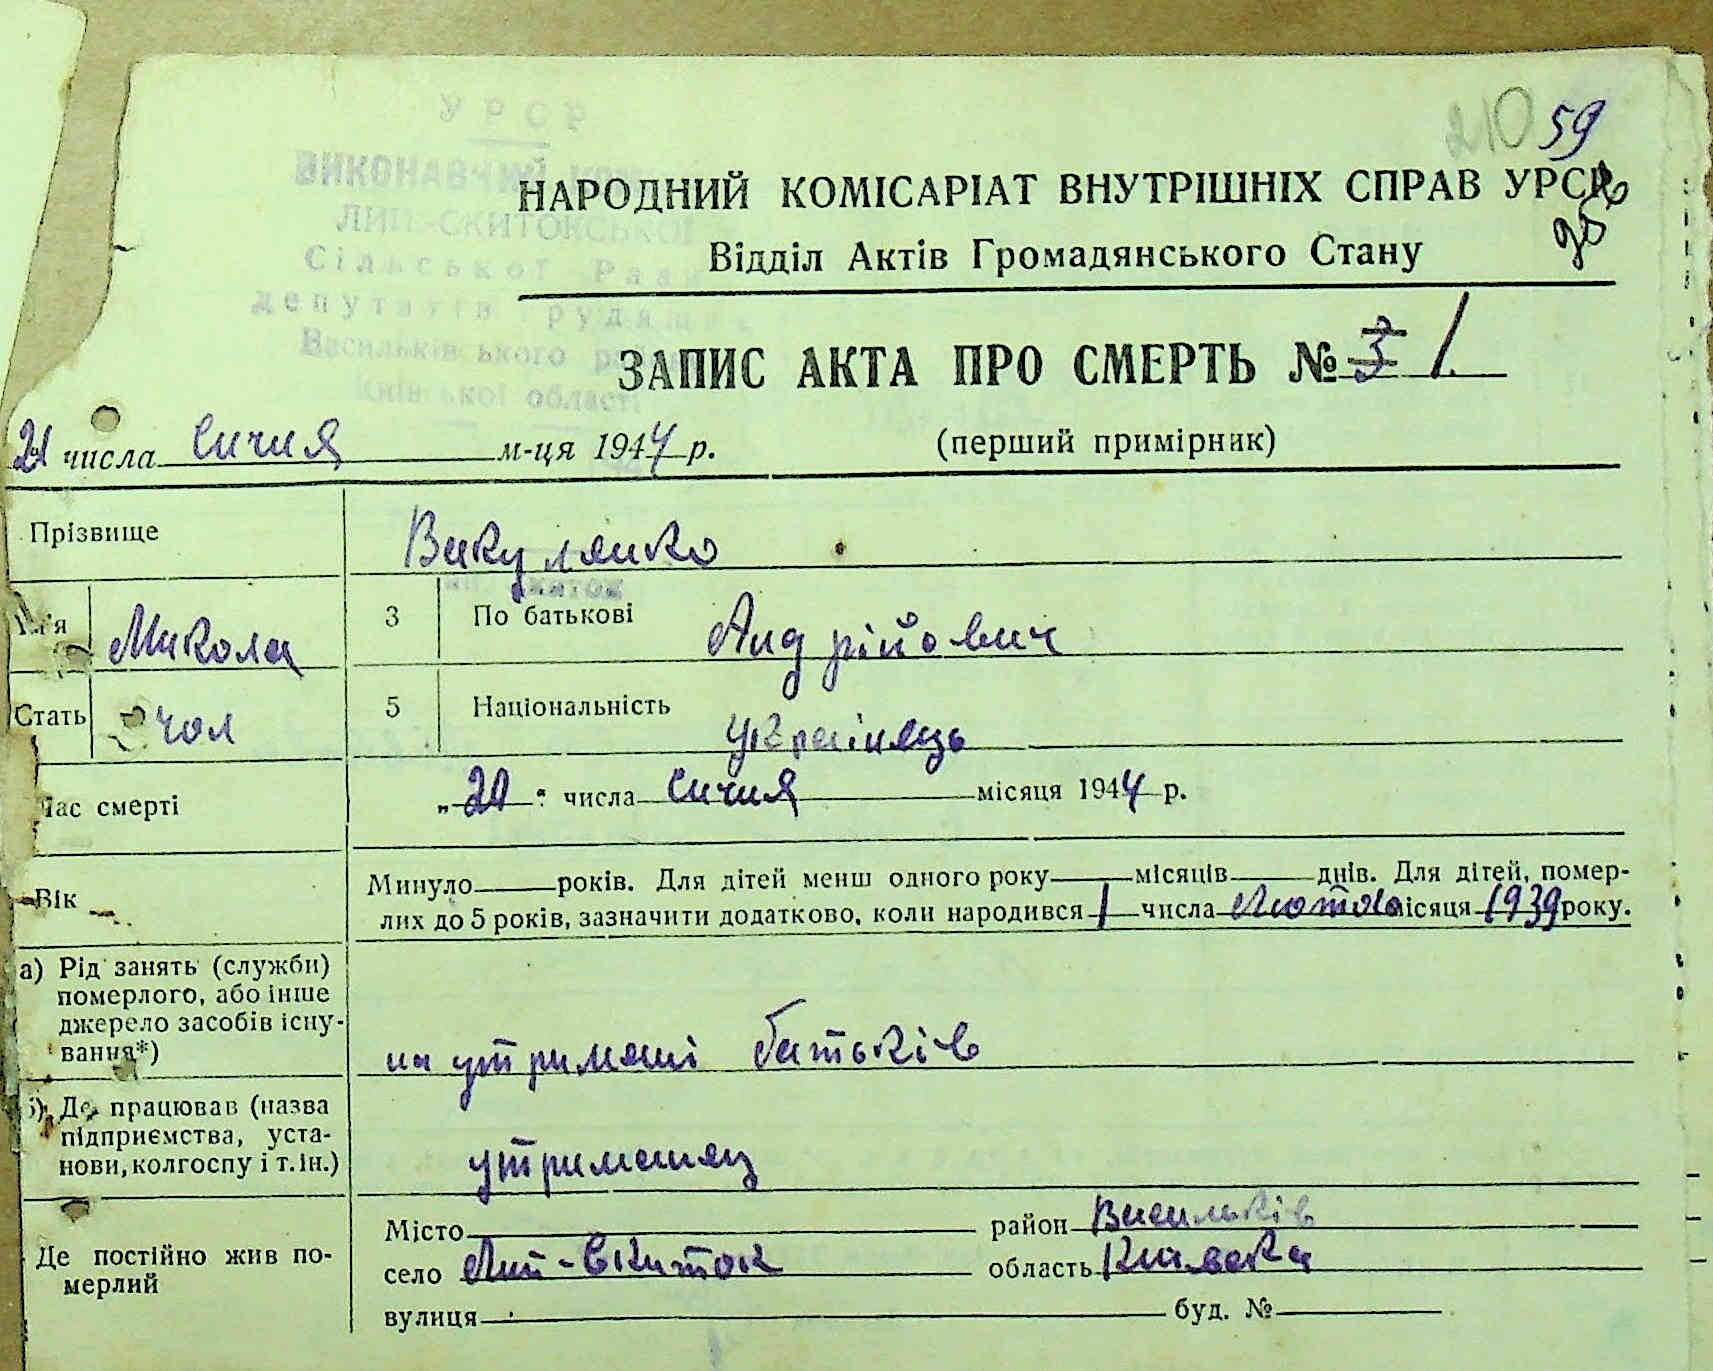 210 59
УРСР
ВИКОНАВЧИЙ
НАРОДНИЙ КОМІСАРІАТ ВНУТРІШНІХ СПРАВ УРСР
ЛИП-СКИТОКСЬКОЇ
Відділ Актів Громадянського Стану
Сільської Ради
депутатів трудящих
Васильківського
ЗАПИС АКТА ПРО СМЕРТЬ № 3 1
Київської області
21 числа січня м-ця 1944 р. (перший примірник)
Прізвище Вакуленко
Ім'я Микола 3 По батькові Андрійович
Стать чол 5 Національність українець
Час смерті „20" числа січня місяця 1944 р.
Вік Минуло років. Для дітей менш одного року місяців днів. Для дітей, помер-
лих до 5 років, зазначити додатково, коли народився 1 числа Лютого місяця 1939 року.
а) Рід занять (служби)
померлого, або інше
джерело засобів існу-
вання*) на утримані батьків
б) Де працював (назва
підприємства, уста-
нови, колгоспу і т. ін.) утриманец
Де постійно жив по-
мерлий
Місто район Васильків
село Лип-Скиток область Київська
вулиця буд. №